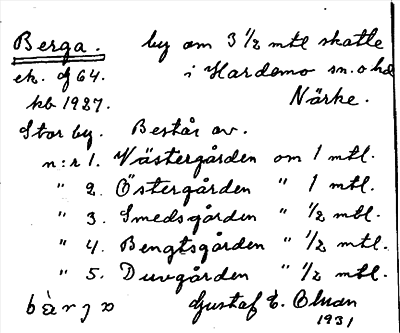 Berga. by om 3 1/2 mtl skatte
ek. bl 64. i Hardemo sn. o hd
kb 1927. Närke.
Stor by. Består av.
n:r 1. Västergården om 1 mtl.
" 2. Östergården " 1 mtl.
" 3. Smedsgården " 1/2 mtl.
" 4. Bengtsgården " 1/2 mtl.
" 5. Duvgården " 1/2 mtl.
Gustaf E.
1931